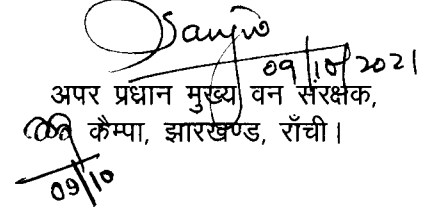 Sanjiv
09/10/2021
अपर प्रधान मुख्य वन संरक्षक,
कैम्पा, झारखण्ड, राँची।
09/10